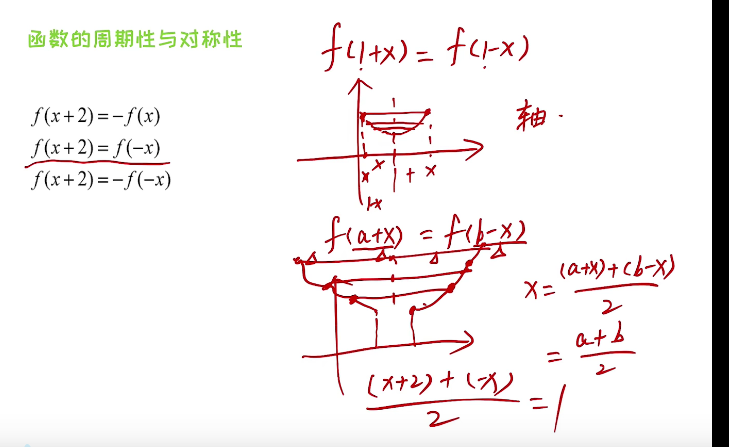 函数的周期性与对称性
f(1+x) = f(1-x)
f(x+2)=-f(x)
f(x+2)=f(-x)
f(x+2)=-f(-x)
轴.
x x 1 + x
1-x
f(a+x) = f(b-x)
x= (a+x)+(b-x) / 2
= a+b / 2
(x+2)+(-x) / 2 = 1